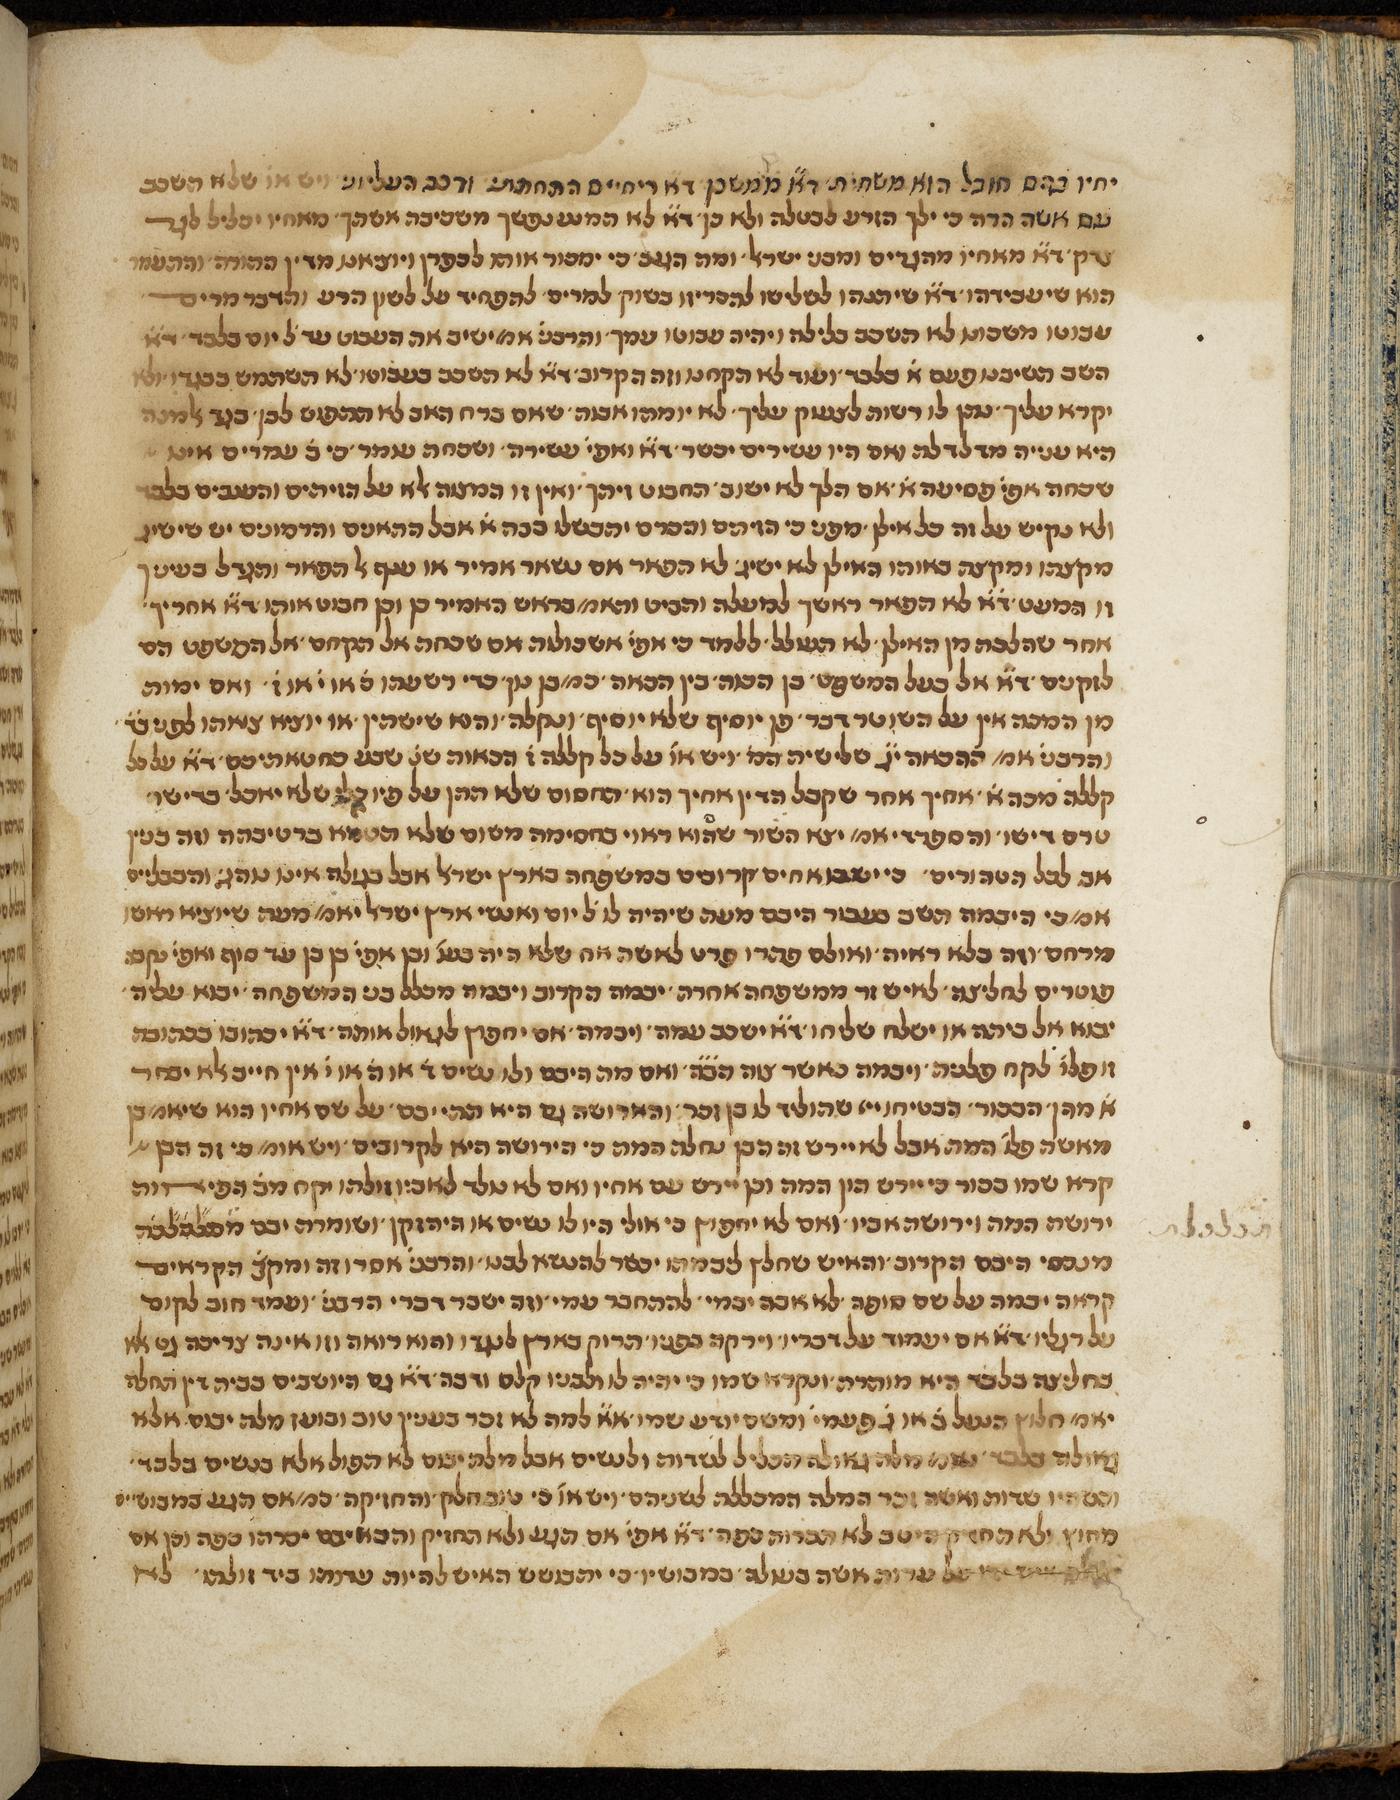 יחיו בהם חובל הוא משחית ד׳א׳ ממשכן ד׳א ריחיים התחתוני ורכב העליוני ויש או׳ שלא תשכב
עם אשה הרה כי ילך הזרע לבטלה ולא כן ד׳א׳ לא תמנע נפשך משכיבה אשתך מאחיו יכליל לגר
צדק ד׳א׳ מאחיו מהגרים ומבני ישר׳ ומה הגנב כי ימכור אותו לכפרן ויוציאנו מדין התורה והתעמר
הוא שיעבידהו ד׳א׳ שיתנהו לשלישו להכריזו בשוק למרים להפחיד על לשון הרע והדבר מרים
עבוטו משכונו לא תשכב בלילה ויהיה עבוטו עמך והרבנ׳ אמ׳ ישיב את העבוט עד ל׳ יום בלבד ד׳א׳
השב תשיבנו פעם א׳ בלבד ועוד לא תקחנו וזה הקרוב ד׳א׳ לא תשכב בעבוטו לא תשתמש בבגדו ולא
יקרא עליך נתן לו רשות לצעוק עליך לא יומתו אבות שאם ברח האב לא תתפוש לבן בגד אלמנה
היא ענייה מדלדלה ואם היו עשירים יכשר ד׳א׳ ואפי׳ עשירה ושכחת עומר כי ב׳ עמרים אינו
שכחה אפי׳ פסיעה א׳ אם הלך לא ישוב תחבוט זיתך ואין זו המצוה אלא על הזיתים והענבים בלבד
ולא נקיש על זה כל אילן מפני כי הזיתים והכרם יתבשלו בבת א׳ אבל התאנים והרמונים יש שישיג
מקצתו ומקצת באותו האילן לא ישיג לא תפאר אם נשאר אמיר או ענף אל תפאר והגדל בעינך
זו המעט ד׳א׳ לא תפאר ראשך למעלה והביט והאמ׳ בראש האמיר כן וכן חבוט אותו ד׳א׳ אחריך
אחר שהלכת מן האילן לא תעולל ללמד כי אפי׳ אשכולות אם שכחת אל תקחם אל המשפט הם
לזקנים ד׳א׳ אל בעל המשפט בן הכות בין הכאה כמ׳ בן נון כדי רשעתו ב׳ או י׳ או ז׳ ואם ימות
מן המכה אין על השוטר דבר פן יוסיף שלא יוסיף ונקלה והוא שישתין או יוציא צואתו לפני ב״ד
והרבנ׳ אמ׳ ההכאה י״ג שלישית המ׳ ויש או׳ על כל קללה ז׳ הכאות שנ׳ שבע כחטאתיכם ד׳א׳ על כל
קללה מכה א׳ אחיך אחר שקבל הדין אחיך הוא תחסום שלא תתן על פיו כלי שלא יאכל בדישו
טרם דישו והספרדי אמ׳ יצא השור שהוא ראוי בחסימה משום שלא תטמא ברטיבתה וזה בנין
אב לכל הטהורים כי ישבו אחים קרובים במשפחה בארץ ישר׳ אבל בגולה אינו נוהג והבבליים
אמ׳ כי היבמה תשב בעבור היבם מעת שיהיה לו ל׳ יום ואנשי ארץ ישר׳ יאמ׳ מעת שיוציא ראשו
מרחם וזה בלא ראיה ואולם פתרו פרט לאשת אח שלא היה בעו׳ ובן אפי׳ בן בן עד סוף ואפי׳ נקבה
פוטרים לחליצה לאיש זר ממשפחה אחרת יבמה הקרוב ויבמה מכלל בני המשפחה יבוא עליה
יבוא אל ביתה או ישלח שליחו ד׳א׳ ישכב עמה ויבמה אם יחפוץ לגאול אותה ד׳א׳ יכתובו בכתובה
זו פלו׳ לקח פלנית ויבמה כאשר צוה הב״ה ואם מת היבם ולו נשים ד׳ או ה׳ או י׳ אין חייב לא יבחר
א׳ מהן הבכור הבטיחו ייי׳ שהוליד לו בן זכר והארושה גם היא תתייבם על שם אחיו הוא שיאמ׳ בן
מאשת פלו׳ המת אבל לא יירש זה הבן נחלת המת כי הירושה היא לקרובים ויש אומ׳ כי זה הבן
קרא שמו בכור כי יירש הון המת וכן יירש עם אחיו ואם לא נולד לאביו זולתו יקח מב׳ הפיאות
ירושת המת וירושת אביו ואם לא יחפוץ כי אולי היו לו נשים או היה זקן ושומרת יבם מסכלכלת
מנכסי היבם הקרוב והאיש שחלץ ליבמתו יכשר להנשא לבנו והרבנ׳ אסרו זה ומקצ׳ הקראים
קראה יבמה על שם סופה לא אבה יבמי להתחבר עמי וזה ישבר דברי הרבנ׳ ועמד חוב לקום
על רגליו ד׳א׳ אם יעמוד על דבריו וירקה בפניו תרוק בארץ לנגדו והוא רואה וזו אינה צריכה גט אלא
בחליצה בלבד היא מותרת ונקרא שמו כי יהיה לו ולבניו קלס ודבה ד׳א׳ גם היושבים בבית דין תחלה
יאמ׳ חלוץ הנעל ב׳ או ג׳ פעמי׳ ומשם יודע שמו א׳א׳ למה לא זכר בענין טוב ובועז מלת יבום אלא
גאולה בלבד נאמ׳ מלת גאולה תכליל לשדות ולנשים אבל מלת יבום לא תפול אלא בנשים בלבד
ושם היו שדות ואשה זכר המלה המכללה לשניהם ויש או׳ כי טוב חלק והחזיקה כמ׳ אם תגע במבושיו
מחוץ ולא תחזק היטב לא תכרות כפה ד׳א׳ אפי׳ אם תגע ולא תחזיק והבא איבם יכרתו כפה וכן אם
על ערות אשה בעולה במבושיו כי יתבושש האיש להיות ערותו ביד זולתו לא